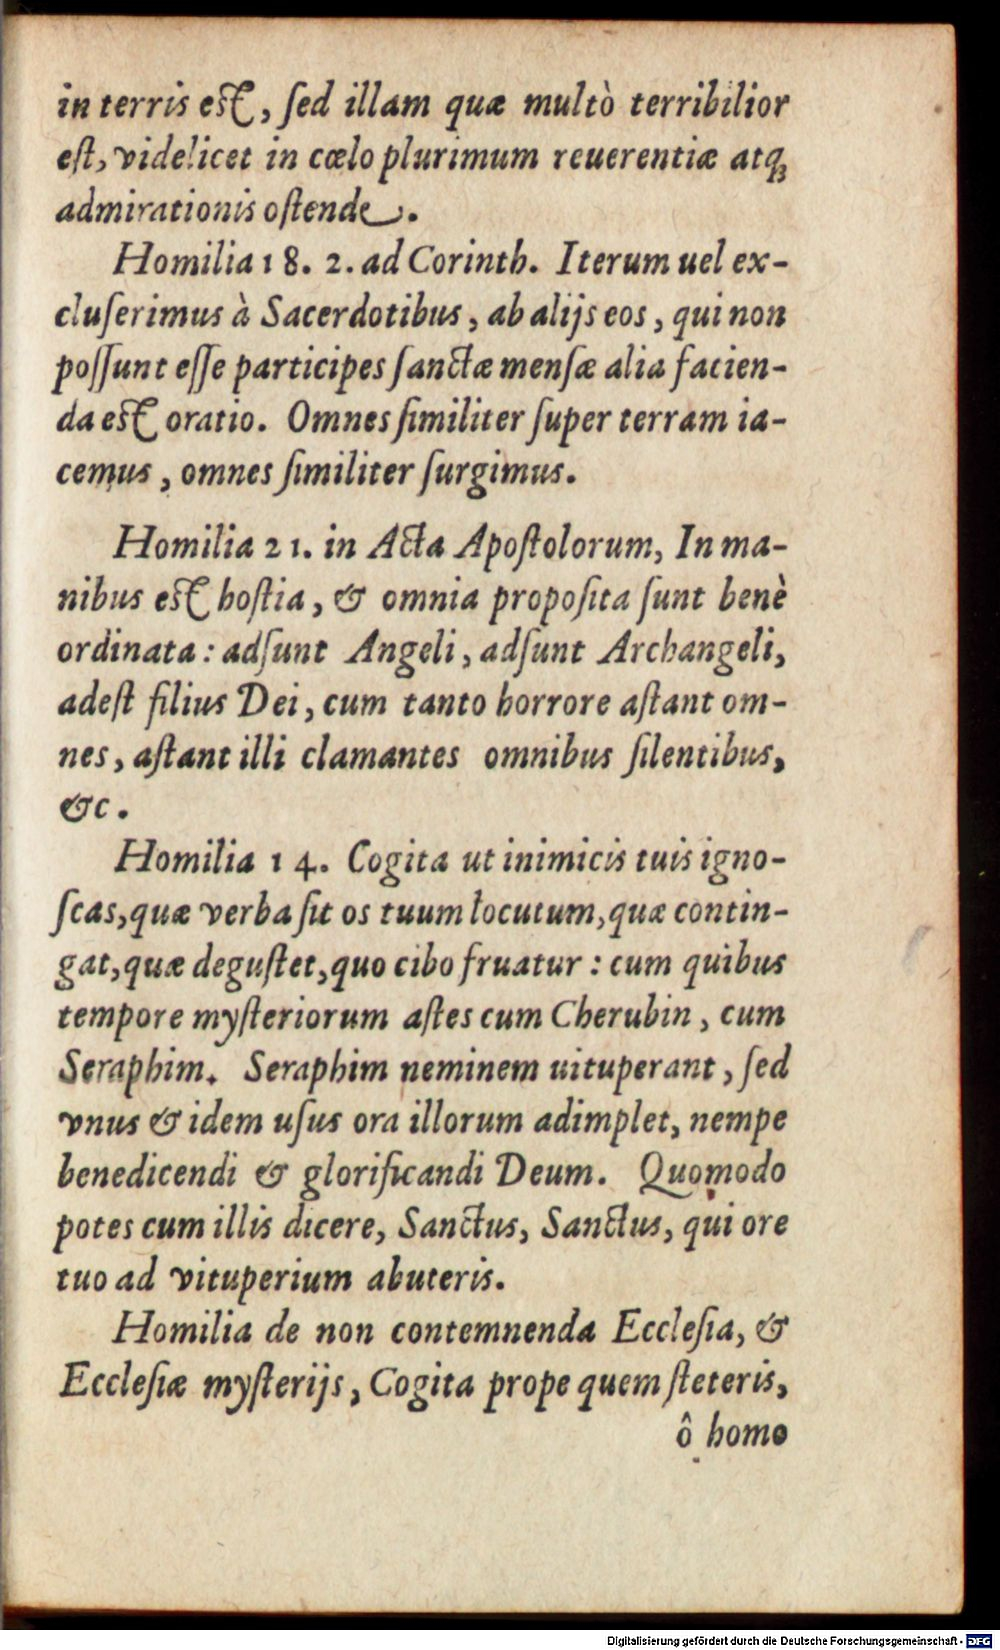 in terris est, ſed illam quæ multò terribilior
eſt, videlicet in cœlo plurimum reuerentiæ atqꝫ
admirationis oſtende.
Homilia 18. 2. ad Corinth. Iterum uel ex-
cluſerimus à Sacerdotibus, ab alijs eos, qui non
poſſunt eſſe participes ſanctæ menſæ alia facien-
da est oratio. Omnes ſimiliter ſuper terram ia-
cemus, omnes ſimiliter ſurgimus.
Homilia 21. in Acta Apoſtolorum, In ma-
nibus est hoſtia, & omnia propoſita ſunt benè
ordinata: adſunt Angeli, adſunt Archangeli,
adeſt filius Dei, cum tanto horrore aſtant om-
nes, aſtant illi clamantes omnibus ſilentibus,
&c.
Homilia 14. Cogita ut inimicis tuis igno-
ſcas, quæ verba ſit os tuum locutum, quæ contin-
gat, quæ deguſtet, quo cibo fruatur: cum quibus
tempore myſteriorum aſtes cum Cherubin, cum
Seraphim. Seraphim neminem uituperant, ſed
vnus & idem uſus ora illorum adimplet, nempe
benedicendi & glorificandi Deum. Quomodo
potes cum illis dicere, Sanctus, Sanctus, qui ore
tuo ad vituperium abuteris.
Homilia de non contemnenda Eccleſia, &
Eccleſiæ myſterijs, Cogita prope quem ſteteris,
ô homo
Digitalisierung gefördert durch die Deutsche Forschungsgemeinschaft - DFG